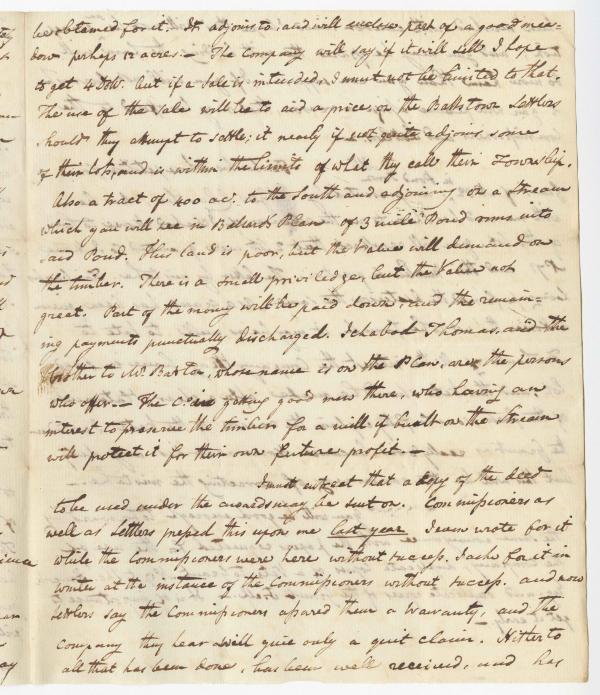 be obtained for it. It adjoins to, and will enclose part of a good mea-
dow perhaps 12 acres. — The Company will say if it will sell I hope
to get 4 Doll. but if a sale is intended, I must not be limited to that.
The use of the sale will be to aid a price on the Ballstown Settlers
should they attempt to settle; it nearly if not quite adjoins some
of their lots, and is within the limits of what they call their Township.
Also a tract of 400 ac. to the South and adjoining on a Stream
which you will see in Ballards Plan of 3 mile Pond runs into
said Pond. This land is poor, but the Value will demand on
the timber. There is a small priviledge, but the Value not
great. Part of the money will be paid down, and the remain-
ing payments punctually discharged. Ichabod Thomas, and the
Brother to Mr. Barton, whose name is on the Plan, are the persons
who offer. — The Co. is going good men there, who having an
interest to preserve the timber for a mill if built on the Stream
will protect it for their own future profit. —
I must intreat that a copy of the deed
to be used under the award may be sent on. Commissioners as
well as Settlers pressed this upon me last year I even wrote for it
while the Commissioners were here without success. I ask for it in
winter at the instance of the Commissioners without success. and now
Settlers say the Commissioners assured them a Warranty, and the
Company they hear will give only a quit claim. Hitherto
all that has been done, has been well received, and has